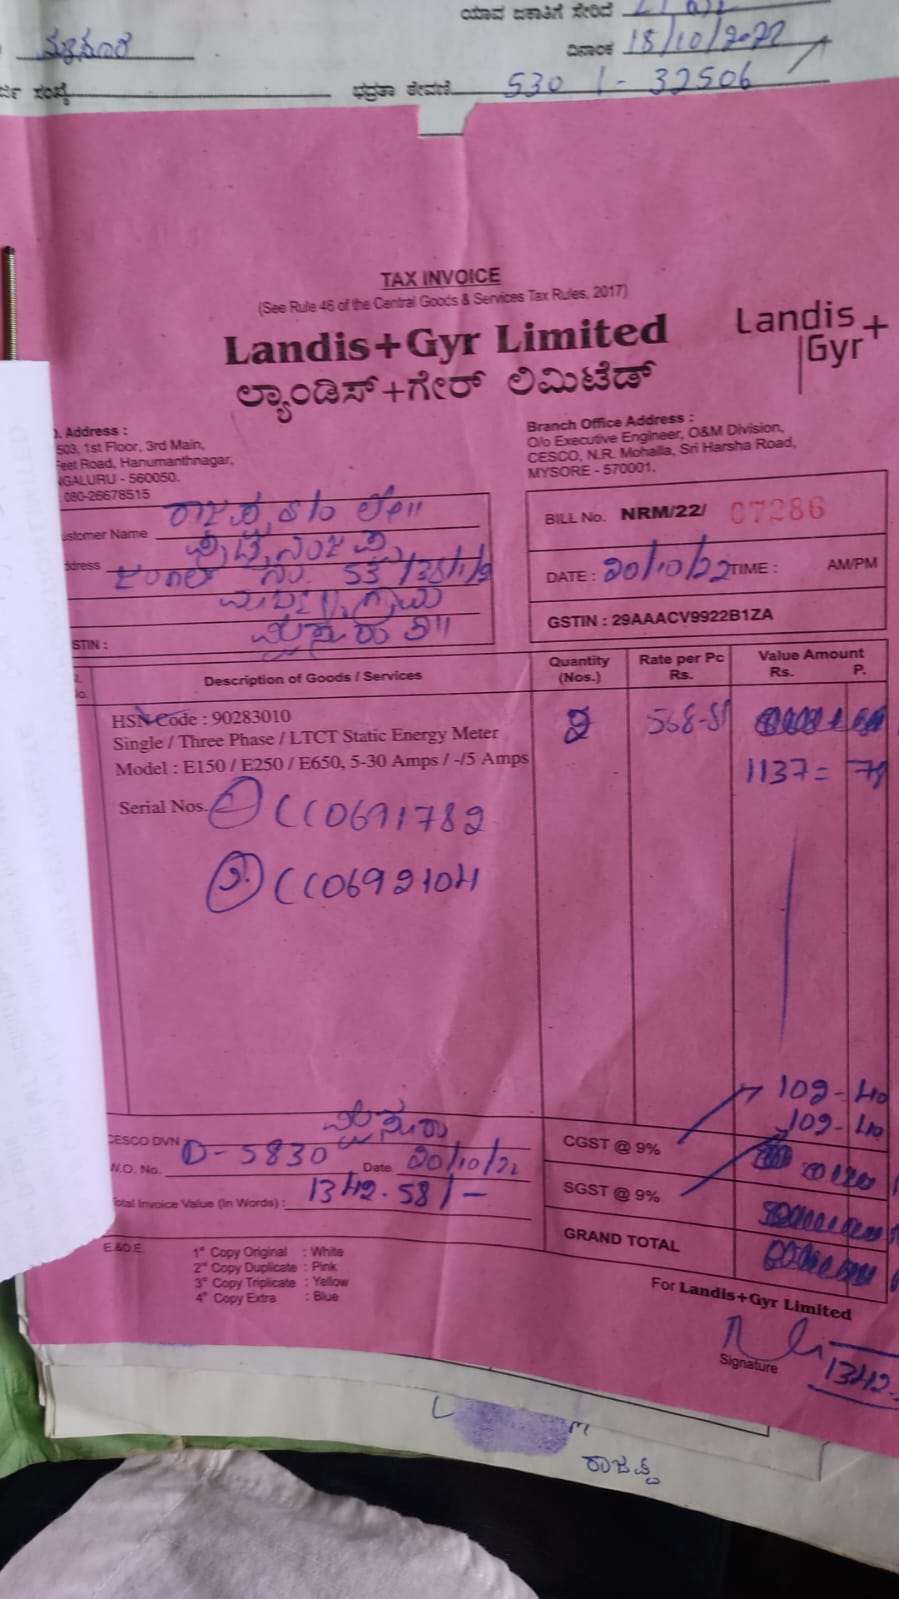 ಯಾವ ಜಕಾತಿಗೆ ಸೇರಿದೆ
ದಿನಾಂಕ 18/10/2022
ಸಂಖ್ಯೆ
ಭದ್ರತಾ ಠೇವಣಿ 530/- 32506
TAX INVOICE
(See Rule 46 of the Central Goods & Services Tax Rules, 2017)
Landis+Gyr Limited
ಲ್ಯಾಂಡಿಸ್+ಗೇರ್ ಲಿಮಿಟೆಡ್
Landis+
Gyr
Address :
503, 1st Floor, 3rd Main,
Feet Road, Hanumanthnagar,
NGALURU - 560050.
: 080-26678515
Branch Office Address :
O/o Executive Engineer, O&M Division,
CESCO, N.R. Mohalla, Sri Harsha Road,
MYSORE - 570001.
ustomer Name
ddress
STIN :
BILL No. NRM/22/ 07286
DATE : 20/10/22 TIME : AM/PM
GSTIN : 29AAACV9922B1ZA
Description of Goods / Services
Quantity (Nos.)
Rate per Pc Rs.
Value Amount Rs. P.
HSN Code : 90283010
Single / Three Phase / LTCT Static Energy Meter
Model : E150 / E250 / E650, 5-30 Amps / -/5 Amps
2
568-81
1137=
Serial Nos. 1 CC0691782
2. CC0692104
109-40
109-40
CESCO DVN
W.O. No. D-5830 Date 20/10/22
otal Invoice Value (In Words) : 1342.58/-
CGST @ 9%
SGST @ 9%
GRAND TOTAL
E.&O.E.
1st Copy Original : White
2nd Copy Duplicate : Pink
3rd Copy Triplicate : Yellow
4th Copy Extra : Blue
For Landis+Gyr Limited
Signature
1342.